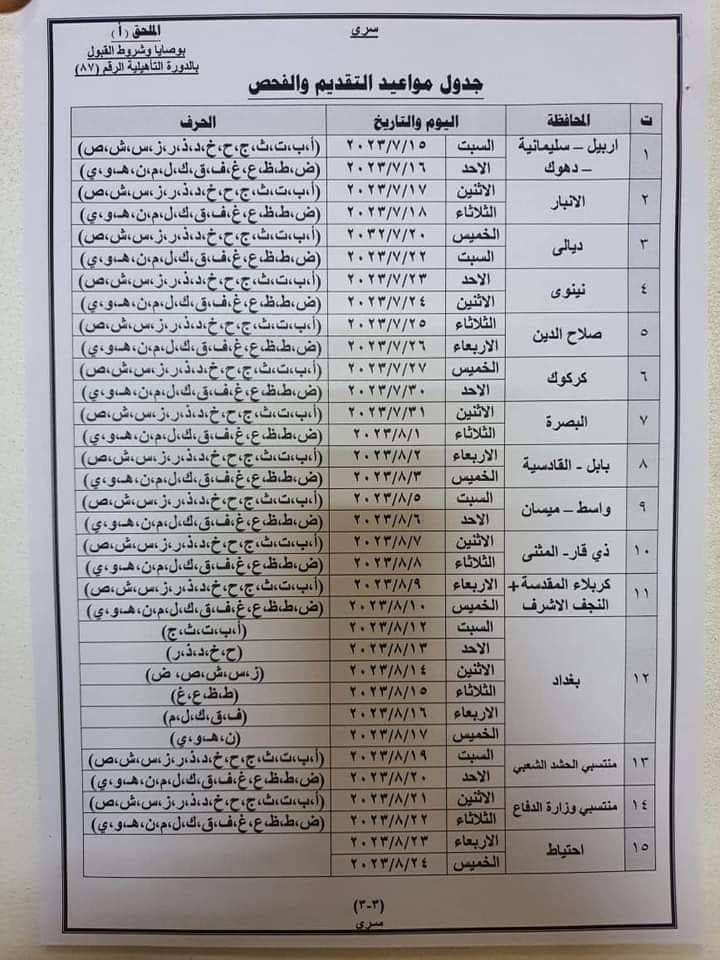 سري
الملحق (أ)
بوصايا وشروط القبول
بالدورة التأهيلية الرقم (٨٧)
جدول مواعيد التقديم والفحص
ت المحافظة اليوم والتاريخ الحرف
١ اربيل – سليمانية – دهوك السبت ٢٠٢٣/٧/١٥ (أ،ب،ت،ث،ج،ح،خ،د،ذ،ر،ز،س،ش،ص)
الاحد ٢٠٢٣/٧/١٦ (ض،ط،ظ،ع،غ،ف،ق،ك،ل،م،ن،هـ،و،ي)
٢ الانبار الاثنين ٢٠٢٣/٧/١٧ (أ،ب،ت،ث،ج،ح،خ،د،ذ،ر،ز،س،ش،ص)
الثلاثاء ٢٠٢٣/٧/١٨ (ض،ط،ظ،ع،غ،ف،ق،ك،ل،م،ن،هـ،و،ي)
٣ ديالى الخميس ٢٠٣٢/٧/٢٠ (أ،ب،ت،ث،ج،ح،خ،د،ذ،ر،ز،س،ش،ص)
السبت ٢٠٢٣/٧/٢٢ (ض،ط،ظ،ع،غ،ف،ق،ك،ل،م،ن،هـ،و،ي)
٤ نينوى الاحد ٢٠٢٣/٧/٢٣ (أ،ب،ت،ث،ج،ح،خ،د،ذ،ر،ز،س،ش،ص)
الاثنين ٢٠٢٣/٧/٢٤ (ض،ط،ظ،ع،غ،ف،ق،ك،ل،م،ن،هـ،و،ي)
٥ صلاح الدين الثلاثاء ٢٠٢٣/٧/٢٥ (أ،ب،ت،ث،ج،ح،خ،د،ذ،ر،ز،س،ش،ص)
الاربعاء ٢٠٢٣/٧/٢٦ (ض،ط،ظ،ع،غ،ف،ق،ك،ل،م،ن،هـ،و،ي)
٦ كركوك الخميس ٢٠٢٣/٧/٢٧ (أ،ب،ت،ث،ج،ح،خ،د،ذ،ر،ز،س،ش،ص)
الاحد ٢٠٢٣/٧/٣٠ (ض،ط،ظ،ع،غ،ف،ق،ك،ل،م،ن،هـ،و،ي)
٧ البصرة الاثنين ٢٠٢٣/٧/٣١ (أ،ب،ت،ث،ج،ح،خ،د،ذ،ر،ز،س،ش،ص)
الثلاثاء ٢٠٢٣/٨/١ (ض،ط،ظ،ع،غ،ف،ق،ك،ل،م،ن،هـ،و،ي)
٨ بابل - القادسية الاربعاء ٢٠٢٣/٨/٢ (أ،ب،ت،ث،ج،ح،خ،د،ذ،ر،ز،س،ش،ص)
الخميس ٢٠٢٣/٨/٣ (ض،ط،ظ،ع،غ،ف،ق،ك،ل،م،ن،هـ،و،ي)
٩ واسط – ميسان السبت ٢٠٢٣/٨/٥ (أ،ب،ت،ث،ج،ح،خ،د،ذ،ر،ز،س،ش،ص)
الاحد ٢٠٢٣/٨/٦ (ض،ط،ظ،ع،غ،ف،ق،ك،ل،م،ن،هـ،و،ي)
١٠ ذي قار- المثنى الاثنين ٢٠٢٣/٨/٧ (أ،ب،ت،ث،ج،ح،خ،د،ذ،ر،ز،س،ش،ص)
الثلاثاء ٢٠٢٣/٨/٨ (ض،ط،ظ،ع،غ،ف،ق،ك،ل،م،ن،هـ،و،ي)
١١ كربلاء المقدسة + النجف الاشرف الاربعاء ٢٠٢٣/٨/٩ (أ،ب،ت،ث،ج،ح،خ،د،ذ،ر،ز،س،ش،ص)
الخميس ٢٠٢٣/٨/١٠ (ض،ط،ظ،ع،غ،ف،ق،ك،ل،م،ن،هـ،و،ي)
١٢ بغداد السبت ٢٠٢٣/٨/١٢ (أ،ب،ت،ث،ج)
الاحد ٢٠٢٣/٨/١٣ (ح،خ،د،ذ،ر)
الاثنين ٢٠٢٣/٨/١٤ (ز،س،ش،ص، ض)
الثلاثاء ٢٠٢٣/٨/١٥ (ط،ظ،ع،غ)
الاربعاء ٢٠٢٣/٨/١٦ (ف،ق،ك،ل،م)
الخميس ٢٠٢٣/٨/١٧ (ن،هـ،و،ي)
١٣ منتسبي الحشد الشعبي السبت ٢٠٢٣/٨/١٩ (أ،ب،ت،ث،ج،ح،خ،د،ذ،ر،ز،س،ش،ص)
الاحد ٢٠٢٣/٨/٢٠ (ض،ط،ظ،ع،غ،ف،ق،ك،ل،م،ن،هـ،و،ي)
١٤ منتسبي وزارة الدفاع الاثنين ٢٠٢٣/٨/٢١ (أ،ب،ت،ث،ج،ح،خ،د،ذ،ر،ز،س،ش،ص)
الثلاثاء ٢٠٢٣/٨/٢٢ (ض،ط،ظ،ع،غ،ف،ق،ك،ل،م،ن،هـ،و،ي)
١٥ احتياط الاربعاء ٢٠٢٣/٨/٢٣
الخميس ٢٠٢٣/٨/٢٤
(٣-٣)
سري